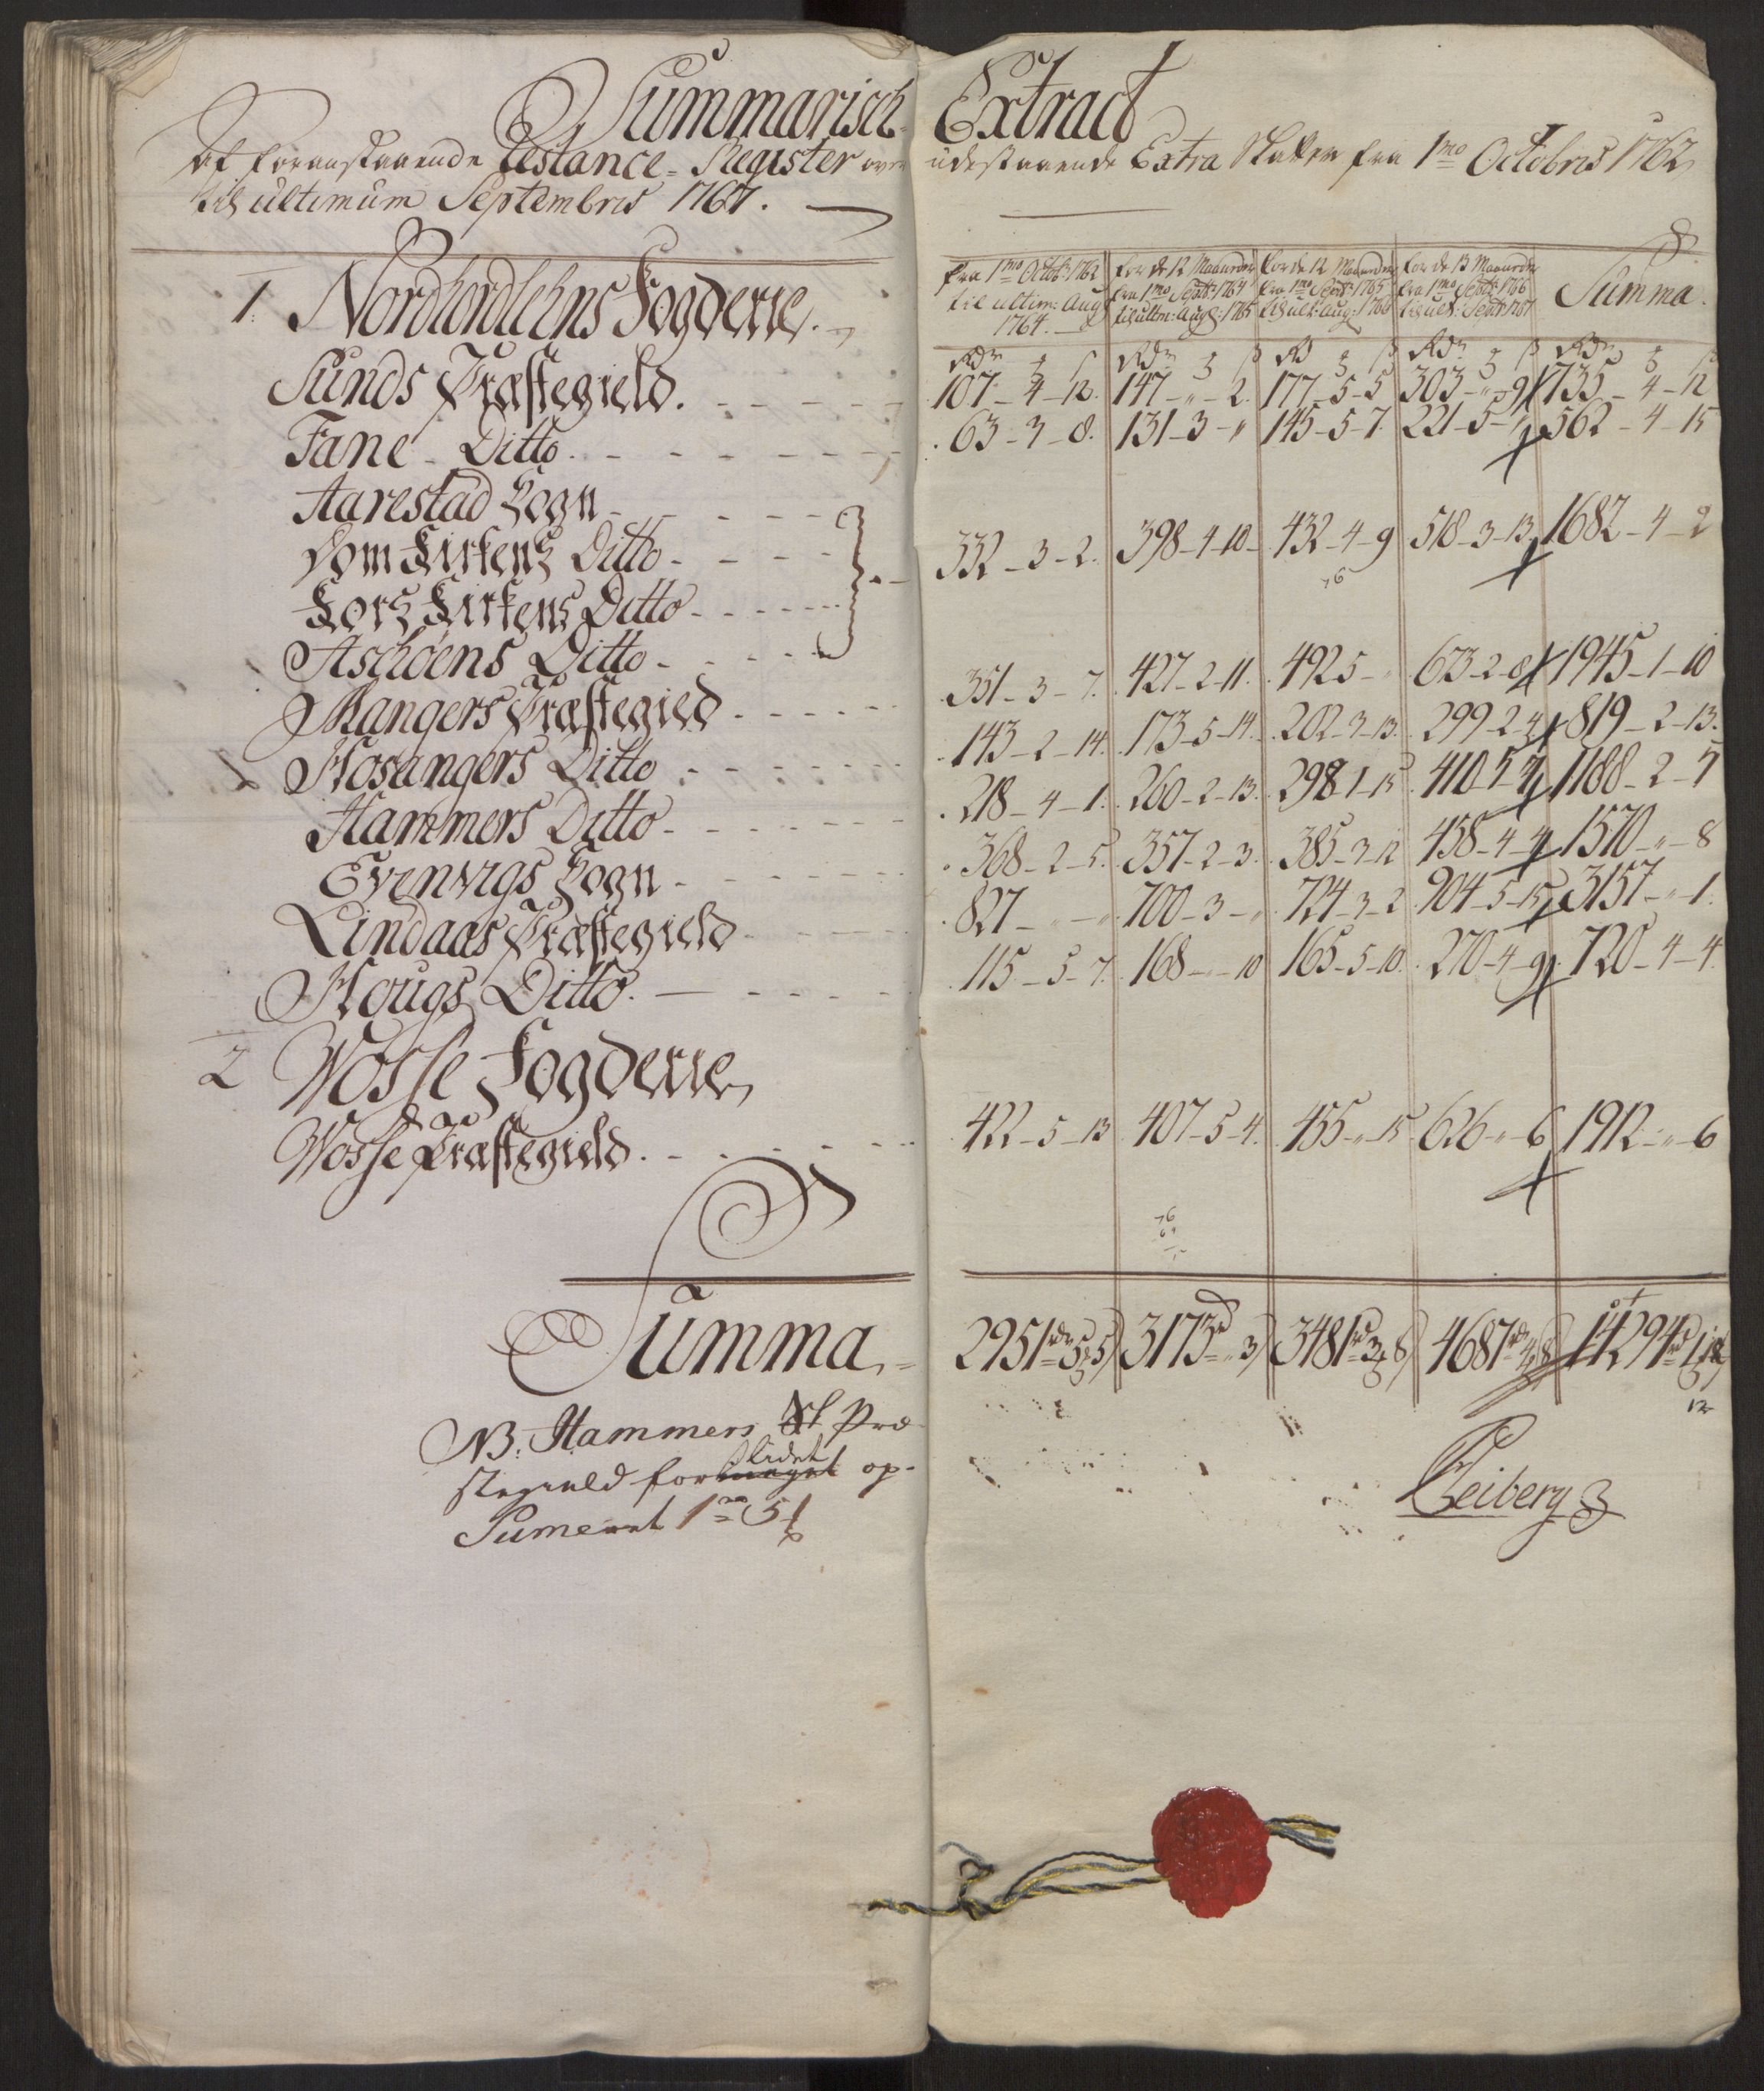 Summarisch Extract
Af foranstaaende Restance-Register over udestaaende Extra Skatten fra 1mo Octobris 1762
til ultimum Septembris 1767.
fra 1mo Octob: 1762 til ultim: Aug 1764. | for de 12 Maaneder fra 1mo Septbr: 1764 til ultm: Aug: 1765 | for de 12 Maaneder fra 1mo Septbr: 1765 til ult: Aug: 1766 | for de 13 Maaneder fra 1mo Septbr: 1766 til ult: Septbr: 1767 | Summa.
1. Nordhordlehns Fogderie.
Rdr ß | Rdr ß | Rd ß | Rdr ß | Rdr ß
Sunds Præstegield. 107-4-12. | 147-"-2. | 177-5-5 | 303-"-9 | 735-4-12
Fane Ditto. 63-3-8. | 131-3-" | 145-5-7. | 221-5-" | 562-4-15
Aarestad Sogn
Dom Kirkens Ditto 332-3-2. | 398-4-10 | 432-4-9 | 518-3-13 | 1682-4-2
Kors Kirkens Ditto
Aschöens Ditto 351-3-7. | 427-2-11. | 492 5-" | 673-2-8 | 1945-1-10
Mangers Præstegield 143-2-14. | 173-5-14. | 202-3-13. | 299-2-4 | 819-2-13.
Hosangers Ditto 218-4-1. | 260-2-13. | 298 1-15 | 410-5-4 | 1188-2-1
Hammers Ditto 368-2-5. | 357-2-3. | 385-3-12 | 458-4-4 | 1570-"-8
Evenvigs Sogn 827-"-" | 700-3-" | 724-3-2 | 904-5-15 | 3157-"-1.
Lindaas Præstegield 115-5-7. | 168-"-10 | 165-5-10. | 270-4-9 | 720-4-4.
Hougs Ditto.
2 Vosse Fogderie
Vosse Præstegield. 422-5-13 | 407-5-4. | 455-"-15 | 626-"-6 | 1912-"-6
Summa 2951 rdr 3 5 | 3173 rd " 3 | 3481 rd 3 8 | 4687 rdr 4 8 | 14294 rd 1 12
12
NB. Hammers Præ-
stegield for lidet op-
Sumeret 1 rd 5
Leiberg